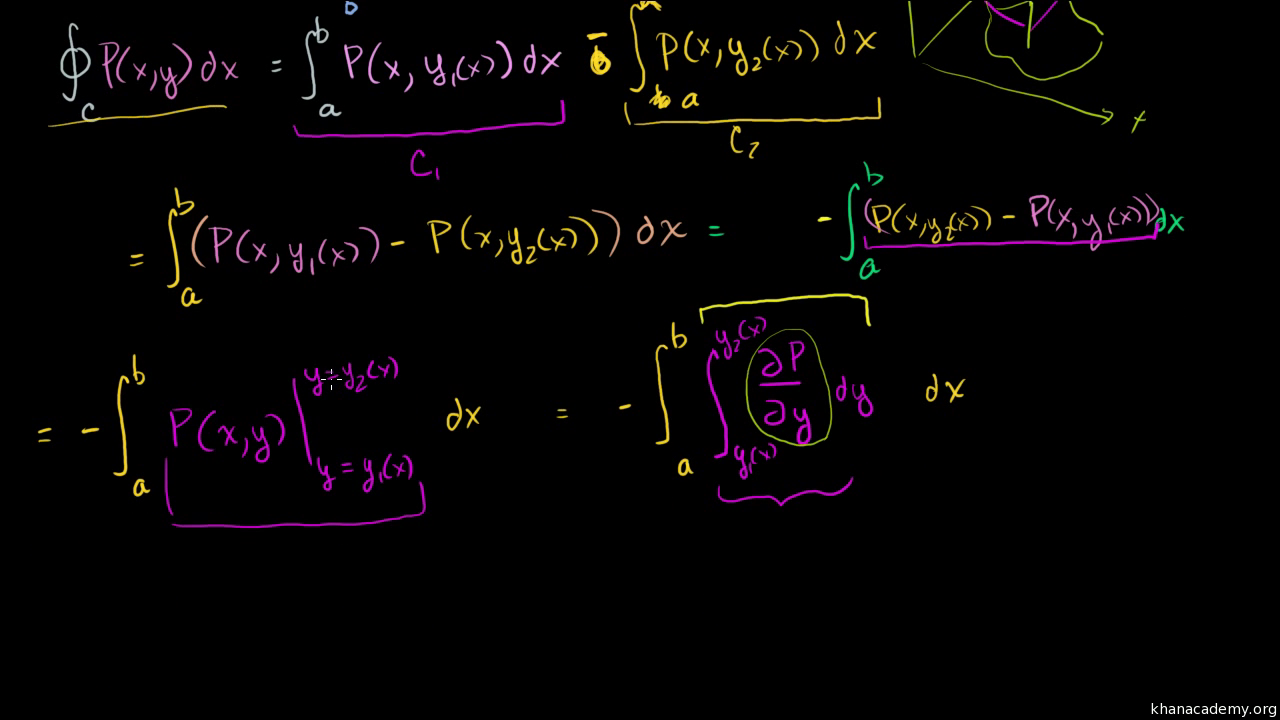 ∮_C P(x,y) dx = ∫_a^b P(x, y₁(x)) dx − ∫_a P(x, y₂(x)) dx
x
C₁ C₂
= ∫_a^b (P(x, y₁(x)) − P(x, y₂(x))) dx = − ∫_a^b (P(x, y₂(x)) − P(x, y₁(x))) dx
= − ∫_a^b P(x,y) |_{y = y₁(x)}^{y = y₂(x)} dx = − ∫_a^b ∫_{y₁(x)}^{y₂(x)} ∂P/∂y dy dx
khanacademy.org